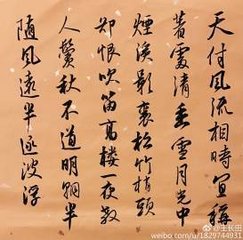 天付風流相時宜稱
著處清幽雪月光中
煙溪影裏松竹梢頭
却恨吹笛高樓一夜教
人鬢秋不道明朝半
隨風遠半逐波浮
weibo.com/u/1829744931